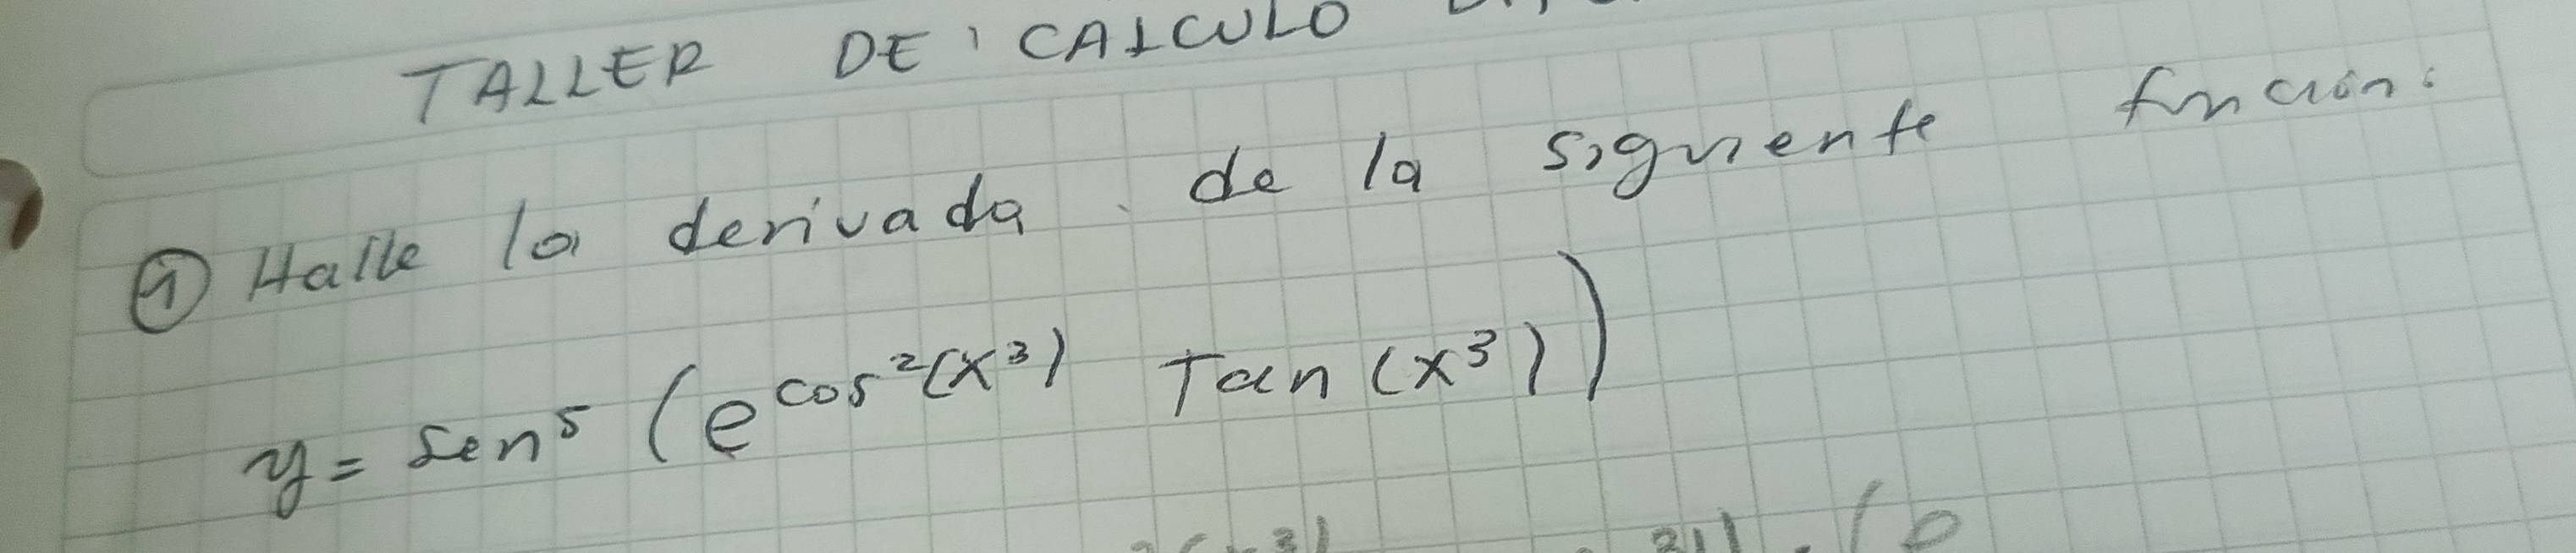 TALLER DE CALCULO
① Halle la derivada de la siguiente función:
y = sen⁵ (e^cos²(x³) Tan (x³))